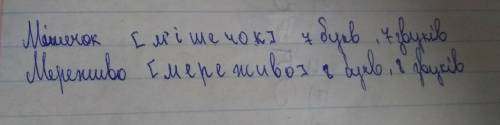 Мішечок [м'ішечок] 7 букв, 7 звуків
Мереживо [мереживо] 8 букв, 8 звуків